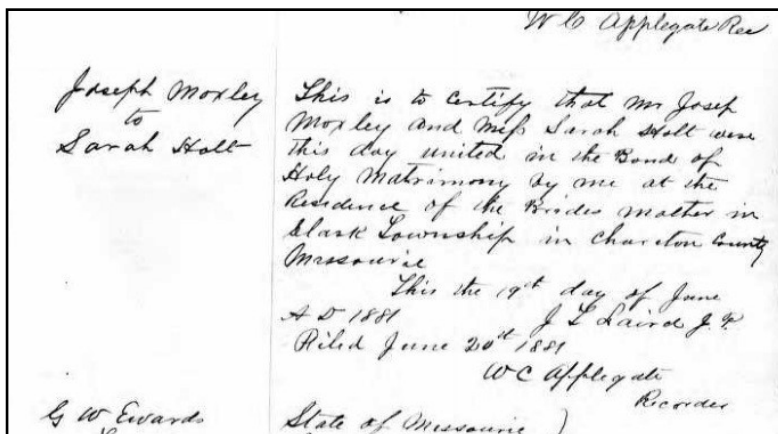 W C Applegate Rec
Joseph Moxley
to
Sarah Holt
This is to Certify that Mr Josep
Moxley and Miss Sarah Holt were
this day united in the Bond of
Holy Matrimony by me at the
Residence of the Brides Mother in
Clark Township in Chariton County
Missourie
This the 19th day of June
A D 1881 J L Laird J P
Filed June 20th 1881
W C Applegate
Recorder
G W Ewards
State of Missourie )